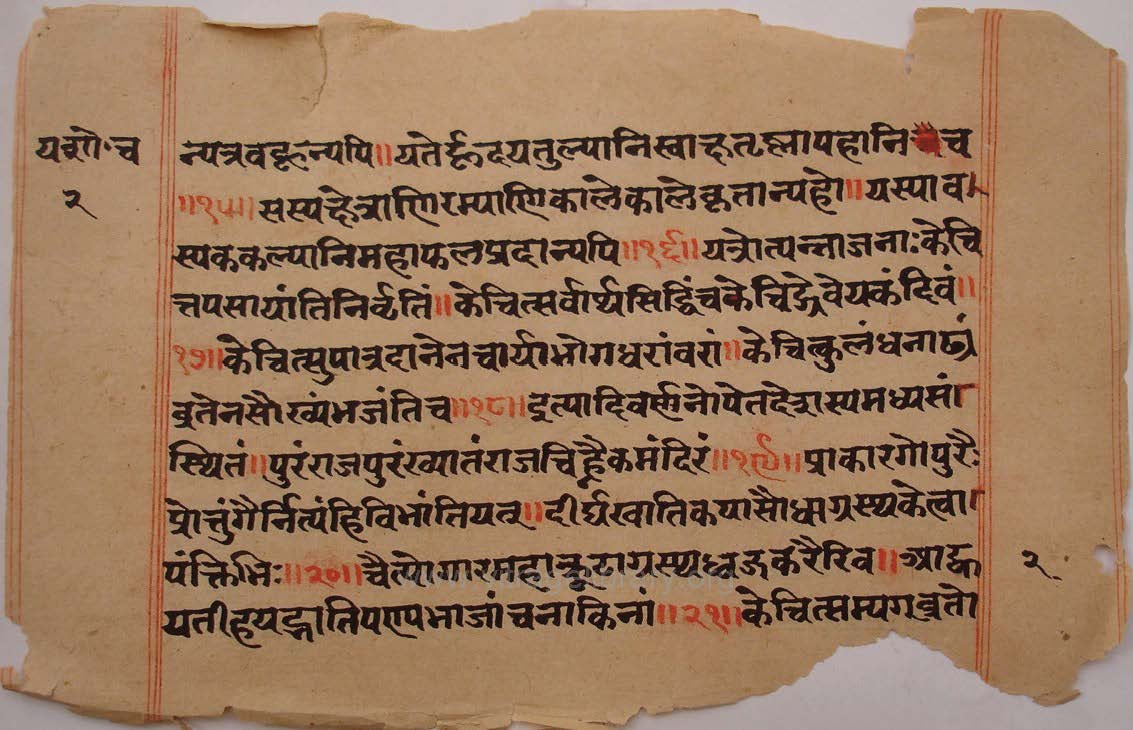 यशो॰च
२
न्यत्रवहून्यपि॥यतेर्हृदयतुल्यानिस्वाछतृष्णापहानिच
॥१५॥सस्यक्षेत्राणिरम्याणिकालेकालेकृतान्यहो॥यस्याव
स्यककल्यानिमहाफलप्रदान्यपि॥१६॥यत्रोत्पन्नाजनाःकेचि
त्तपसायांतिनिर्वृतिं॥केचित्सर्वार्थसिद्धिंचकेचिद्ग्रैवेयकंदिवं॥
१७॥केचित्सुपात्रदानेनचार्याभोगधरांवरां॥केचित्कुलंधनाढ्यं
व्रतेनसौख्यंभजंतिच॥१८॥इत्यादिवर्णनोपेतदेशस्यमध्यसं
स्थितं॥पुरंराजपुरंख्यातंराजचिह्नैकमंदिरं॥१९॥प्राकारगोपुरैः
प्रोत्तुंगैर्नित्यंहिविभांतियत्॥दीर्घखातिकयासौधाग्रस्थकेत्वा
पंक्तिभिः॥२०॥चैत्यागारमहाकूटाग्रस्थध्वजकरैरिव॥आह्व
यतीहयद्भातिपुण्यभाजांचनाकिनां॥२१॥केचित्सम्यगव्रतो
२